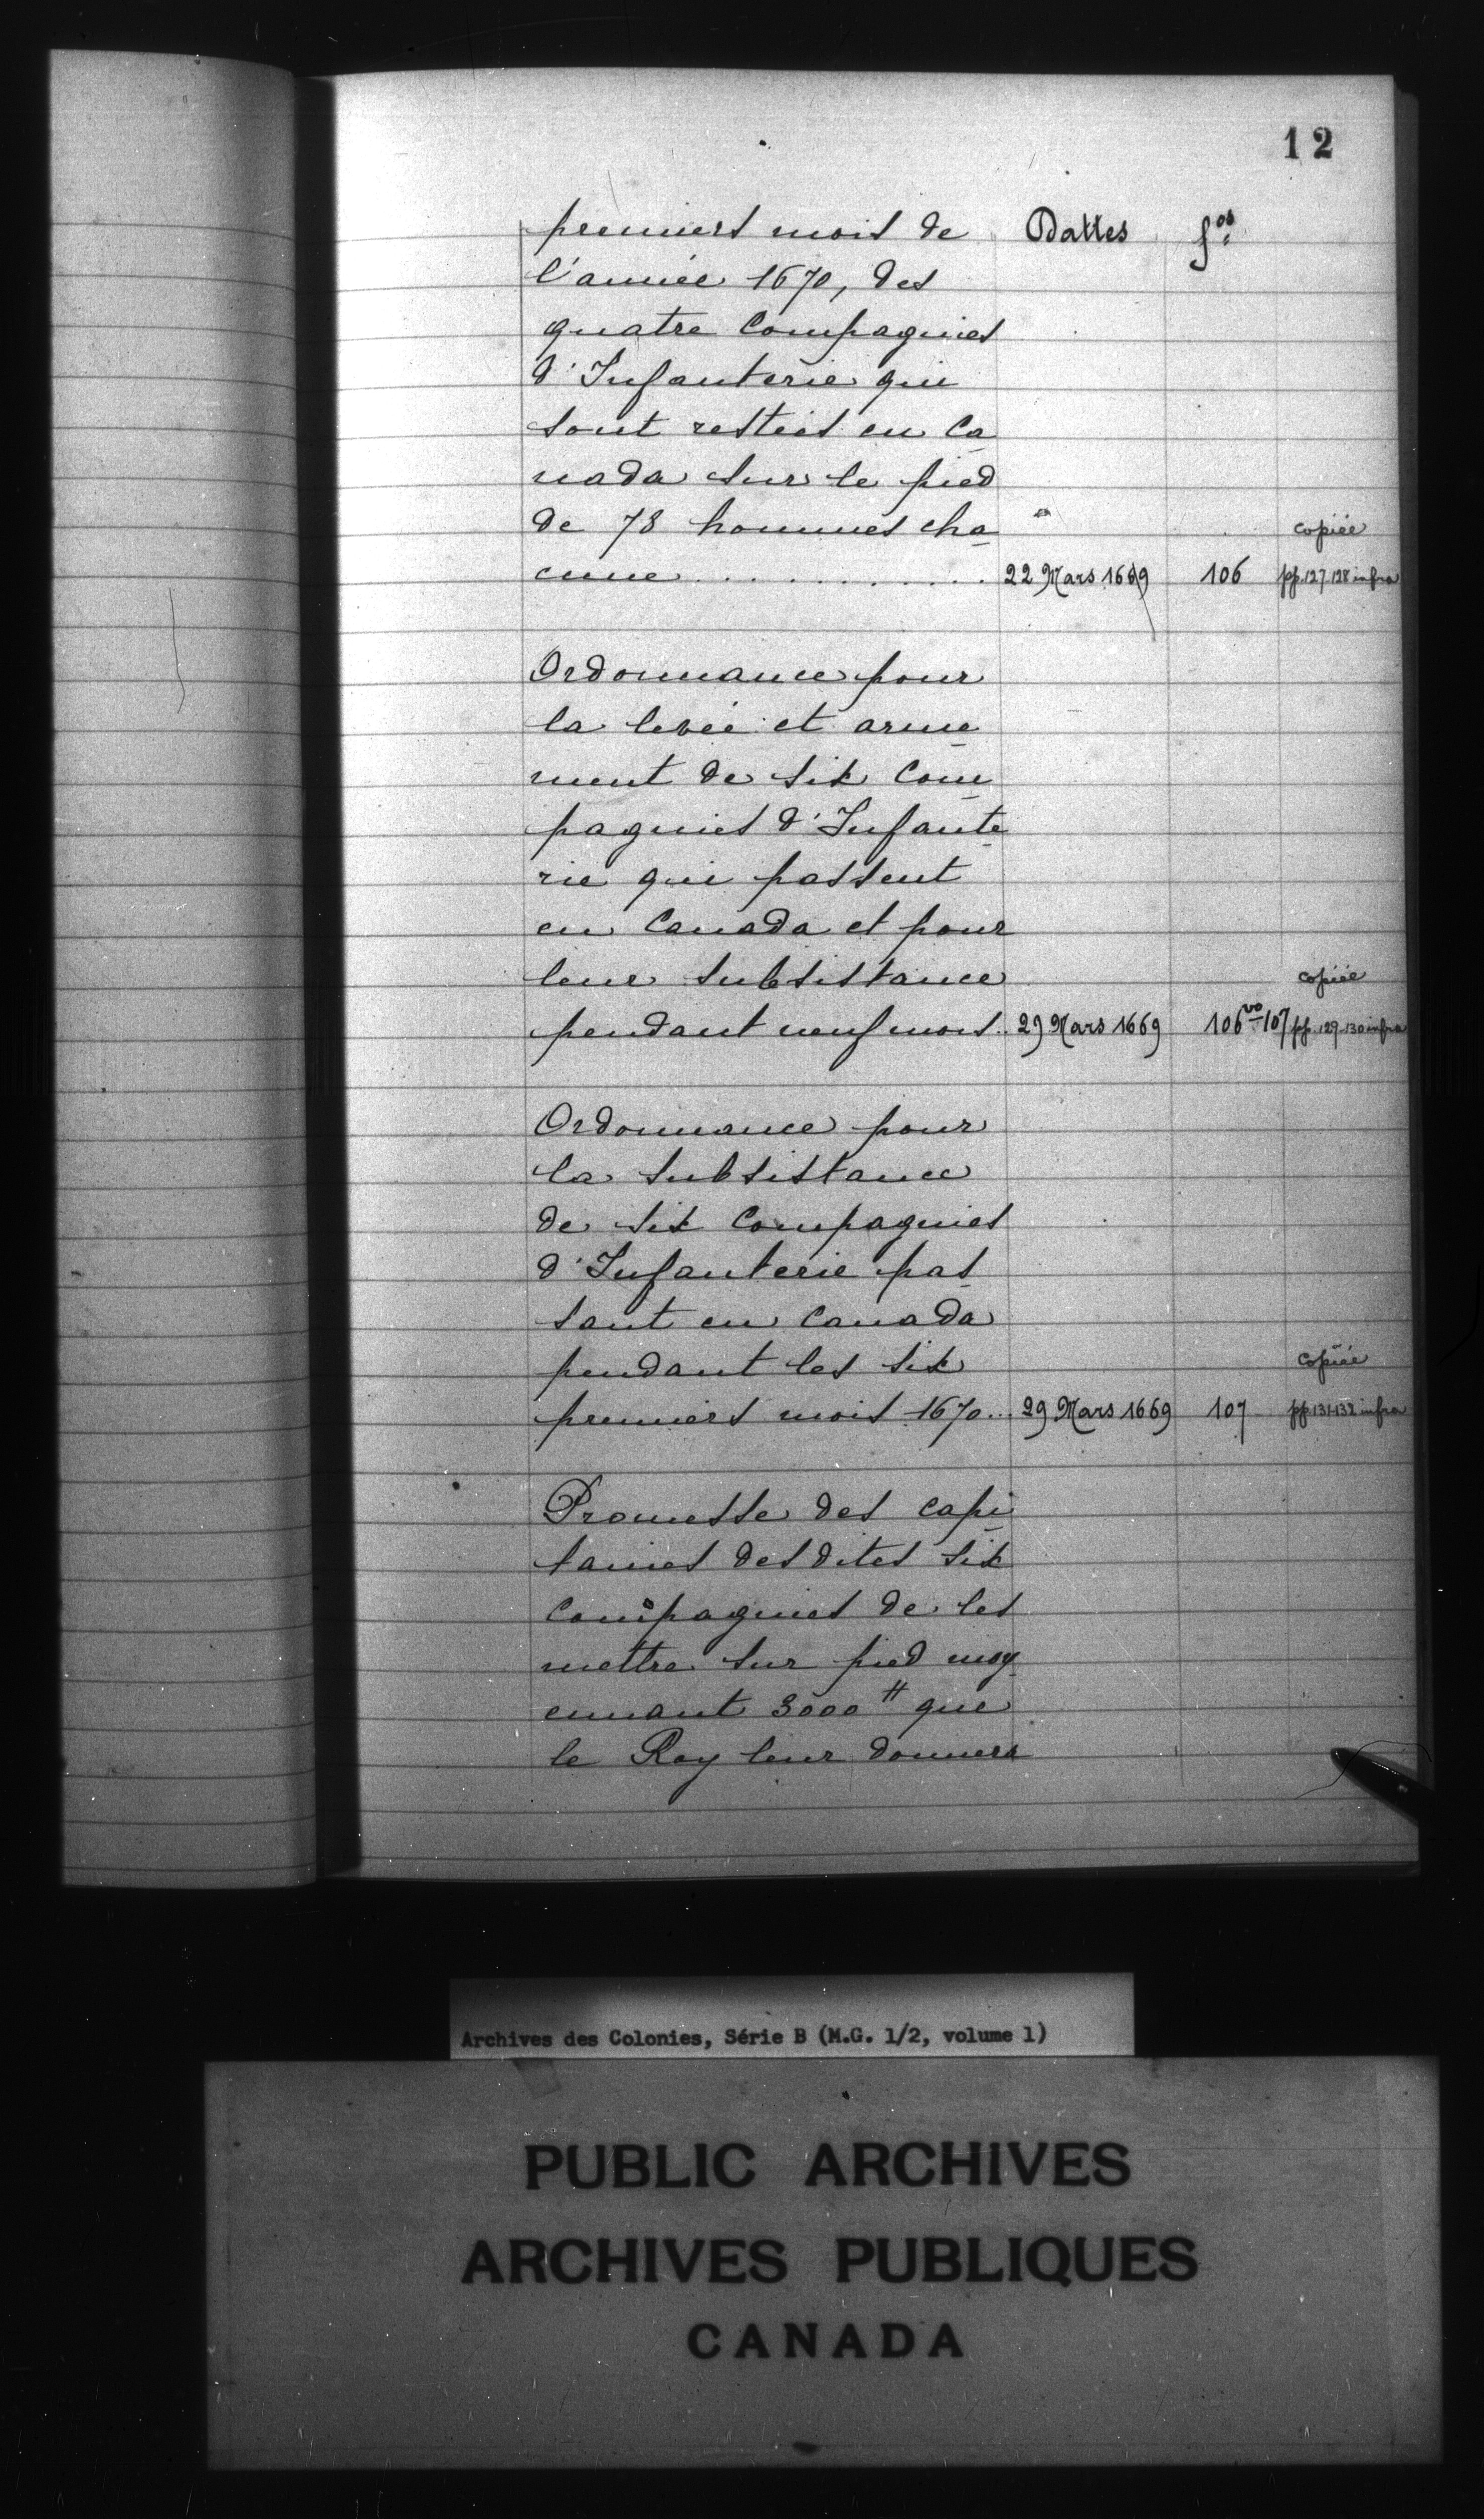 12
premiers mois de Dattes fos
l'année 1670, des
quatre Compagnies
d'Infanterie qui
sont restées en Ca
nada sur le pied
de 78 hommes cha copiée
cune ............. 22 Mars 1669 106 pp. 127-128 infra
Ordonnance pour
la levée et arme
ment de six Com
pagnies d'Infante
rie qui passent
en Canada et pour
leur subsistance copiée
pendant neuf mois.. 29 Mars 1669 106vo-107 pp. 129-130 infra
Ordonnance pour
la subsistance
de six Compagnies
d'Infanterie pas
sant en Canada
pendant les six copiée
premiers mois 1670... 29 Mars 1669 107 pp. 131-132 infra
Promesse des capi
taines des dites six
Compagnies de les
mettre sur pied moy
ennant 3000 # que
le Roy leur donnera
Archives des Colonies, Série B (M.G. 1/2, volume 1)
PUBLIC ARCHIVES
ARCHIVES PUBLIQUES
CANADA